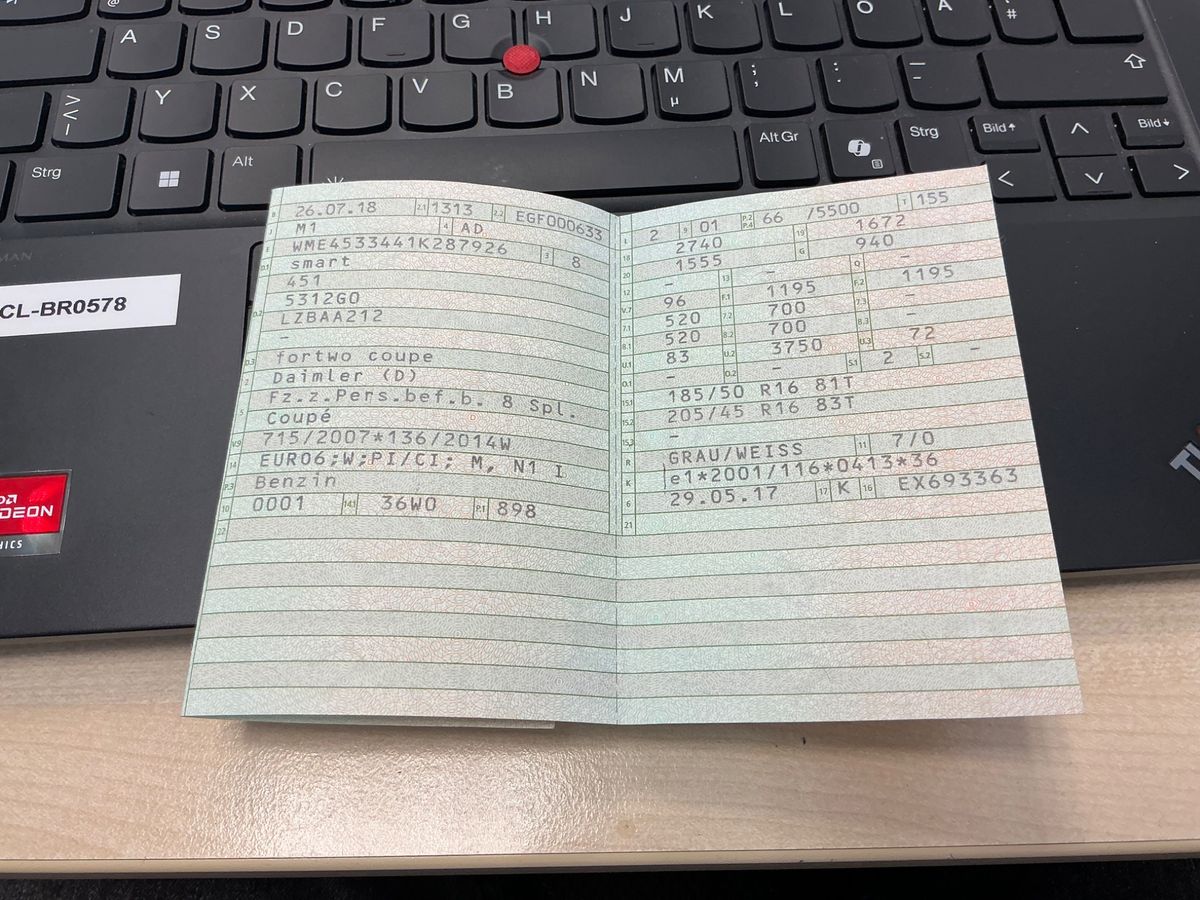 A S D F G H J K L Ö Ä #
> < | Y X C V B N M µ ; , : . _ -
Strg Alt Alt Gr Strg Bild Bild
CL-BR0578
RADEON
B 26.07.18 2.1 1313 2.2 EGF000633
J M1 4 AD
E WME4533441K287926 3 8
D.1 smart
451
5312G0
D.2 LZBAA212
–
D.3 fortwo coupe
2 Daimler (D)
5 Fz.z.Pers.bef.b. 8 Spl.
Coupé
V.9 715/2007*136/2014W
14 EURO6;W;PI/CI; M, N1 I
P.3 Benzin
10 0001 14.1 36W0 P.1 898
22
L 2 9 01 P.2 P.4 66 /5500 T 155
18 2740 19 1672
20 1555 G 940
12 – 13 – Q –
V.7 96 F.1 1195 F.2 1195
7.1 520 7.2 700 7.3 –
8.1 520 8.2 700 8.3 –
U.1 83 U.2 3750 U.3 72
O.1 – O.2 – S.1 2 S.2 –
15.1 185/50 R16 81T
15.2 205/45 R16 83T
15.3 –
R GRAU/WEISS 11 7/0
K e1*2001/116*0413*36
6 29.05.17 17 K 16 EX693363
21